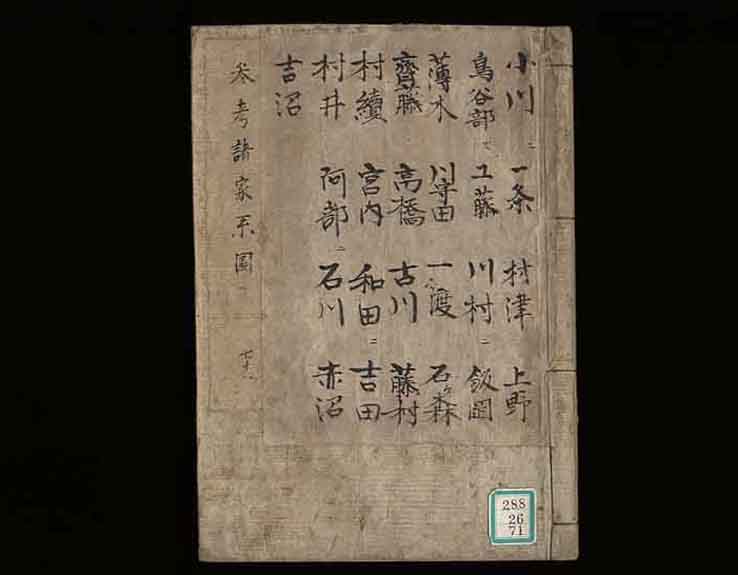 小川二 一条 村津 上野
鳥谷部 工藤 川村二 飯岡
薄木 川守田 一ノ渡 石ケ森
齊藤 高橋 古川 藤村
村續 宮内 和田二 吉田
村井 阿部二 石川 赤沼
吉沼
参考諸家系圖
七十一
288
26
71